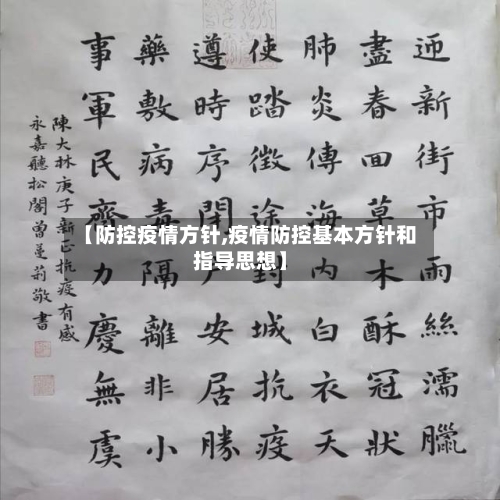 迎新街市雨絲濡臘
盡春回草木酥冠狀
肺炎傳海內白衣天
使踏徵途封城抗疫
遵時序閉戶安居勝
藥敷病毒隔離非小
事軍民齊力慶無虞
陳大林庚子新正抗疫有感
永嘉聽松閣曾曼莉敬書
【防控疫情方针,疫情防控基本方针和
指导思想】